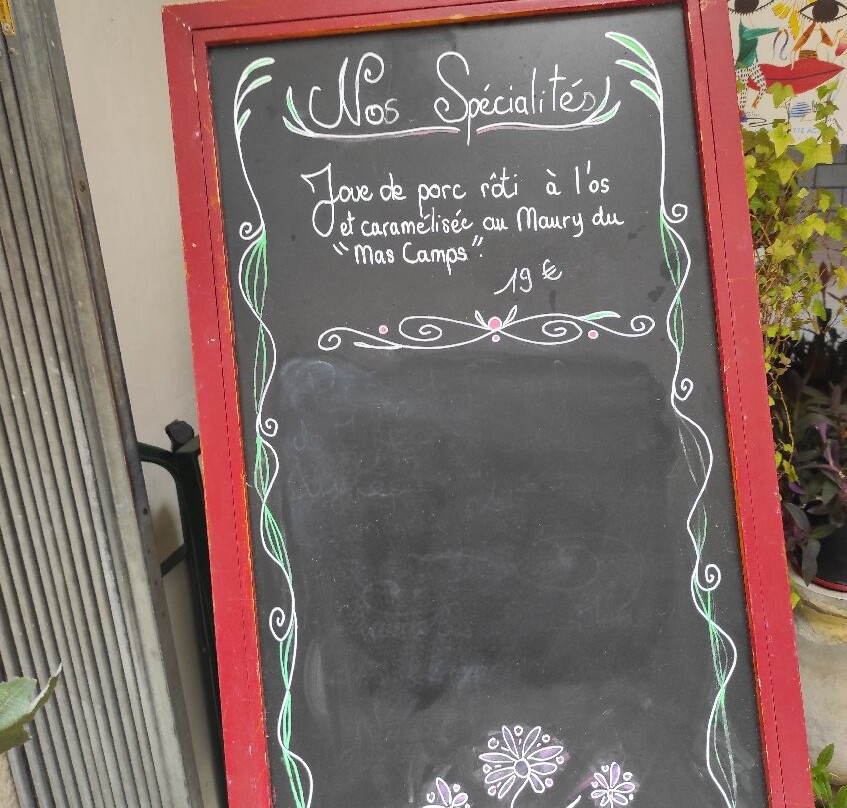 Nos Spécialités
Joue de porc rôti à l'os
et caramélisée au Maury du
"Mas Camps".
19 €